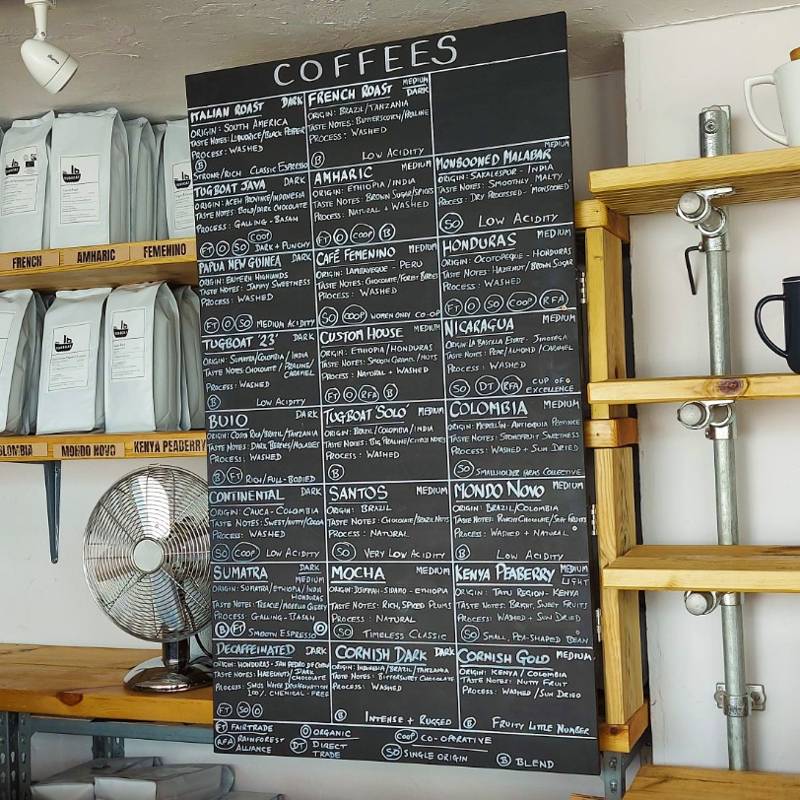 COFFEES
ITALIAN ROAST DARK
ORIGIN: SOUTH AMERICA
TASTE NOTES: LIQUORICE/BLACK PEPPER
PROCESS: WASHED
B
STRONG/RICH CLASSIC ESPRESSO
FRENCH ROAST MEDIUM DARK
ORIGIN: BRAZIL/TANZANIA
TASTE NOTES: BUTTERSCORN/PRALINE
PROCESS: WASHED
B LOW ACIDITY
TUGBOAT JAVA DARK
ORIGIN: ACEH PROVINCE/INDONESIA
TASTE NOTES: BOLD/DARK CHOCOLATE
PROCESS: GALLING-BASAH
FT O SO COOP DARK + PUNCHY
AMHARIC MEDIUM
ORIGIN: ETHIOPIA/INDIA
TASTE NOTES: BROWN SUGAR/SPICES
PROCESS: NATURAL + WASHED
FT O COOP B
MONSOONED MALABAR MEDIUM
ORIGIN: SAKALESPUR - INDIA
TASTE NOTES: SMOOTHLY, MALTY
PROCESS: DRY PROCESSED - MONSOONED
SO LOW ACIDITY
PAPUA NEW GUINEA DARK
ORIGIN: EASTERN HIGHLANDS
TASTE NOTES: JAMMY SWEETNESS
PROCESS: WASHED
FT O SO MEDIUM ACIDITY
CAFÉ FEMENINO MEDIUM
ORIGIN: LAMBAYEQUE - PERU
TASTE NOTES: CHOCOLATE/FOREST BERRIES
PROCESS: WASHED
SO COOP WOMEN ONLY CO-OP
HONDURAS MEDIUM
ORIGIN: OCOTOPEQUE - HONDURAS
TASTE NOTES: HAZELNUT/BROWN SUGAR
PROCESS: WASHED
FT O SO COOP RFA
TUGBOAT '23' DARK
ORIGIN: SUMATRA/COLOMBIA/INDIA
TASTE NOTES CHOCOLATE/PRALINE/CARAMEL
PROCESS: WASHED
B LOW ACIDITY
CUSTOM HOUSE MEDIUM
ORIGIN: ETHIOPIA/HONDURAS
TASTE NOTES: SMOOTH CARAMEL/NUTS
PROCESS: NATURAL + WASHED
FT O RFA B
NICARAGUA MEDIUM
ORIGIN: LA BASTILLA ESTATE - JINOTEGA
TASTE NOTES: PEAR/ALMOND/CARAMEL
PROCESS: WASHED
SO DT RFA CUP OF EXCELLENCE
BUIO DARK
ORIGIN: COSTA RICA/BRAZIL/TANZANIA
TASTE NOTES: DARK BERRIES/MOLASSES
PROCESS: WASHED
B FT RICH/FULL-BODIED
TUGBOAT SOLO MEDIUM
ORIGIN: BRAZIL/COLOMBIA/INDIA
TASTE NOTES: BIG PRALINE/CITRUS NOTES
PROCESS: WASHED
B
COLOMBIA MEDIUM
ORIGIN: MEDELLIN-ANTIOQUIA PROVINCE
TASTE NOTES: STONEFRUIT SWEETNESS
PROCESS: WASHED + SUN DRIED
SO SMALLHOLDER FARMS COLLECTIVE
CONTINENTAL DARK
ORIGIN: CAUCA - COLOMBIA
TASTE NOTES: SWEET/NUTTY/COCOA
PROCESS: WASHED
SO COOP LOW ACIDITY
SANTOS MEDIUM
ORIGIN: BRAZIL
TASTE NOTES: CHOCOLATE/BRAZIL NUTS
PROCESS: NATURAL
SO VERY LOW ACIDITY
MONDO NOVO MEDIUM
ORIGIN: BRAZIL/COLOMBIA
TASTE NOTES: PUNCHY CHOCOLATE/SOFT FRUITS
PROCESS: WASHED + NATURAL
B LOW ACIDITY
SUMATRA DARK MEDIUM
ORIGIN: SUMATRA/ETHIOPIA/INDIA HONDURAS
TASTE NOTES: TOBACCO/MORELLO CHERRY
PROCESS: GALLING-BASAH
B FT SMOOTH ESPRESSO O
MOCHA MEDIUM
ORIGIN: DJIMMAH - SIDAMO - ETHIOPIA
TASTE NOTES: RICH, SPICED PLUMS
PROCESS: NATURAL
SO TIMELESS CLASSIC
KENYA PEABERRY MEDIUM LIGHT
ORIGIN: TATU REGION - KENYA
TASTE NOTES: BRIGHT, SWEET FRUITS
PROCESS: WASHED + SUN DRIED
SO SMALL, PEA-SHAPED BEAN
DECAFFEINATED DARK
ORIGIN: HONDURAS - SAN PEDRO DE COPAN
TASTE NOTES: HAZELNUT/DARK CHOCOLATE
PROCESS: SWISS WATER DECAFFEINATION
100% CHEMICAL-FREE
FT SO O
CORNISH DARK DARK
ORIGIN: INDONESIA/BRAZIL/TANZANIA
TASTE NOTES: BITTERSWEET CHOCOLATE
PROCESS: WASHED
B INTENSE + RUGGED
CORNISH GOLD MEDIUM
ORIGIN: KENYA/COLOMBIA
TASTE NOTES: NUTTY FRUIT
PROCESS: WASHED/SUN DRIED
B FRUITY LITTLE NUMBER
FT FAIRTRADE O ORGANIC COOP CO-OPERATIVE
RFA RAINFOREST ALLIANCE DT DIRECT TRADE SO SINGLE ORIGIN B BLEND
FRENCH AMHARIC FEMENINO
MONDO NOVO KENYA PEABERRY